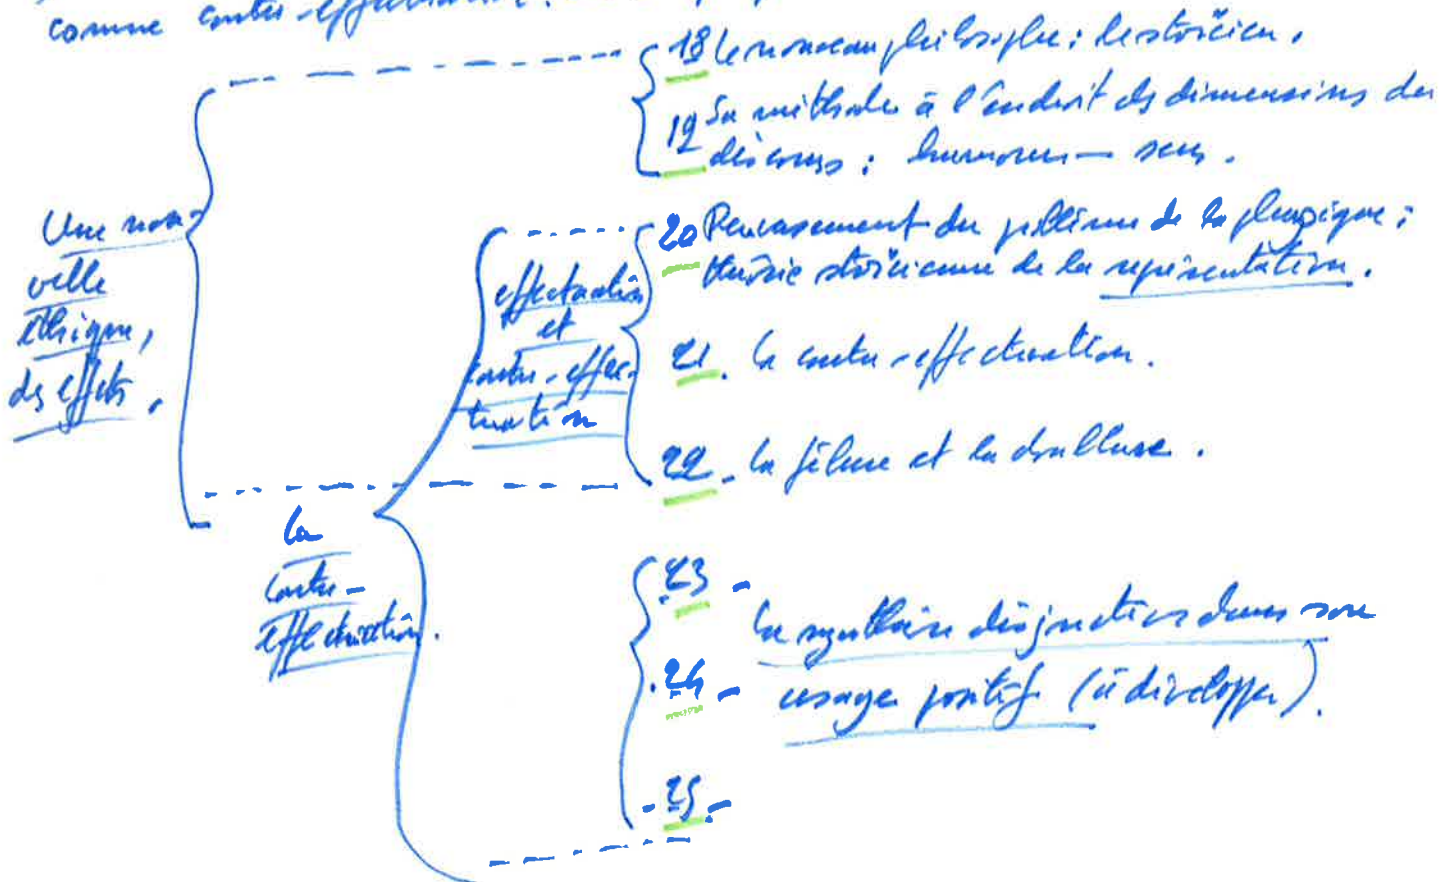 comme contre-effectuation,
18 le nouveau philosophe : le stoïcien.
19 Sa méthode à l'endroit des dimensions du
discours : humour — sens.
Une nou-
velle
éthique,
des effets.
effectuation
et
contre-effec-
tuation
20 du problème de la physique ;
théorie stoïcienne de la représentation.
21. la contre-effectuation.
22 - la fêlure et la doublure.
la
contre-
effectuation.
23 -
24 -
25 -
la synthèse disjonctive dans son
usage positif (à développer).